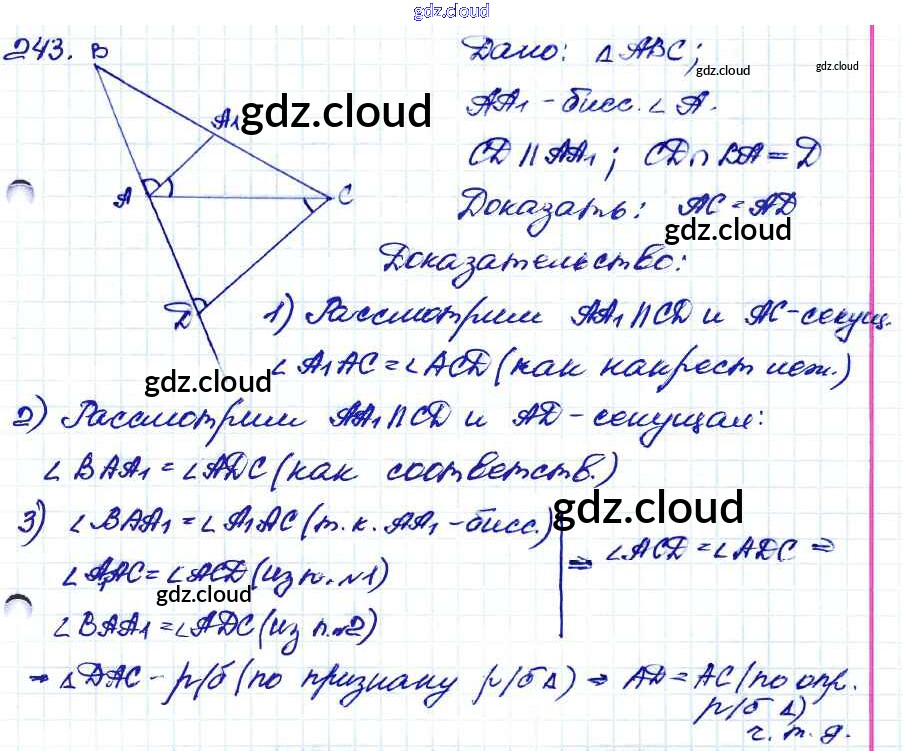 gdz.cloud
243. B
Дано: △ABC;
gdz.cloud
gdz.cloud
A1
gdz.cloud
AA1 - бисс. ∠A.
CD || AA1; CD ∩ BA = D
A
C
Доказать: AC = AD
gdz.cloud
Доказательство:
D
1) Рассмотрим AA1 || CD и AC - секущ.
∠A1AC = ∠ACD (как накрест леж.)
gdz.cloud
2) Рассмотрим AA1 || CD и AD - секущая:
∠BAA1 = ∠ADC (как соответств.)
gdz.cloud
3) ∠BAA1 = ∠A1AC (т.к. AA1 - бисс.)
∠A1AC = ∠ACD (из п. №1)
gdz.cloud
∠BAA1 = ∠ADC (из п. №2)
⇒ ∠ACD = ∠ADC ⇒
⇒ △DAC - р/б (по признаку р/б △) ⇒ AD = AC (по опр.
р/б △)
ч.т.д.